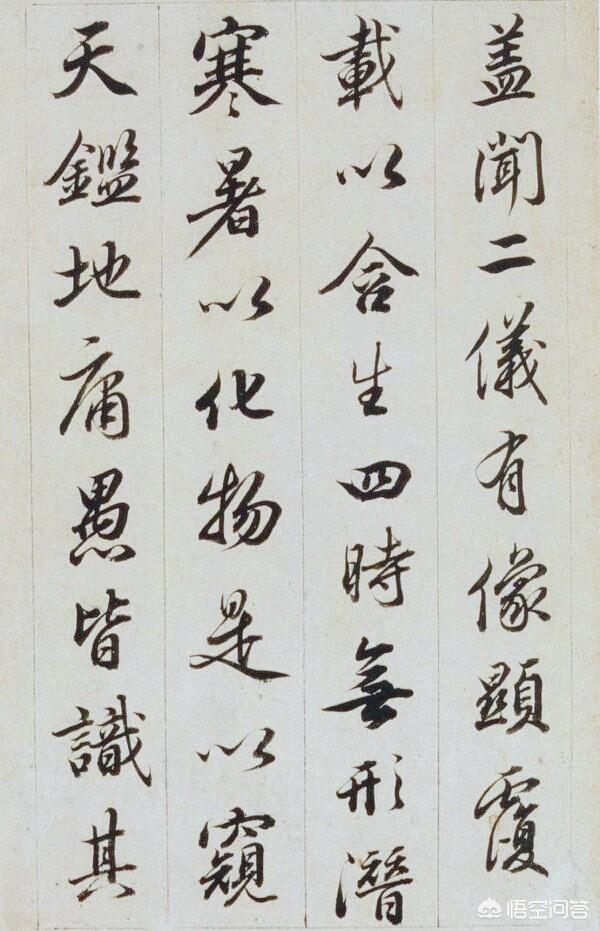 盖聞二儀有像顯覆
載以含生四時無形潛
寒暑以化物是以窺
天鑑地庸愚皆識其
悟空问答